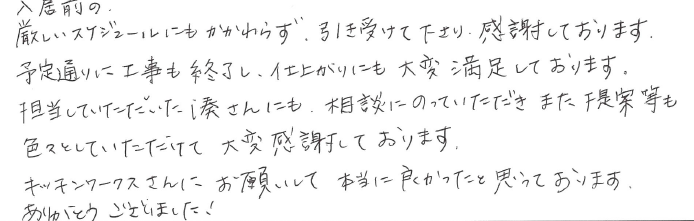 入居前の、
厳しいスケジュールにもかかわらず、引き受けて下さり、感謝しております。
予定通りに工事も終了し、仕上がりにも大変満足しております。
担当していただいた湊さんにも、相談にのっていただき また提案等も
色々としていただけて 大変感謝しております。
キッチンワークスさんに お願いして 本当に良かったと思っております。
ありがとう ございました!